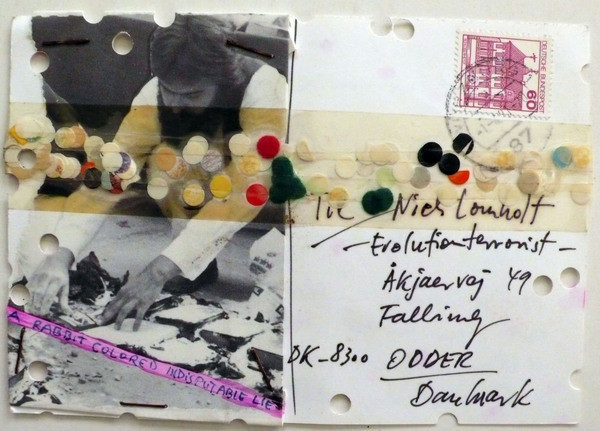 DEUTSCHE BUNDESPOST
60
87
Niels Lomholt
- Evolutionterrorist -
Åkjaervej 49
Falling
DK-8300 ODDER
Danmark
A RABBIT COLORED INDISPUTABLE LIE